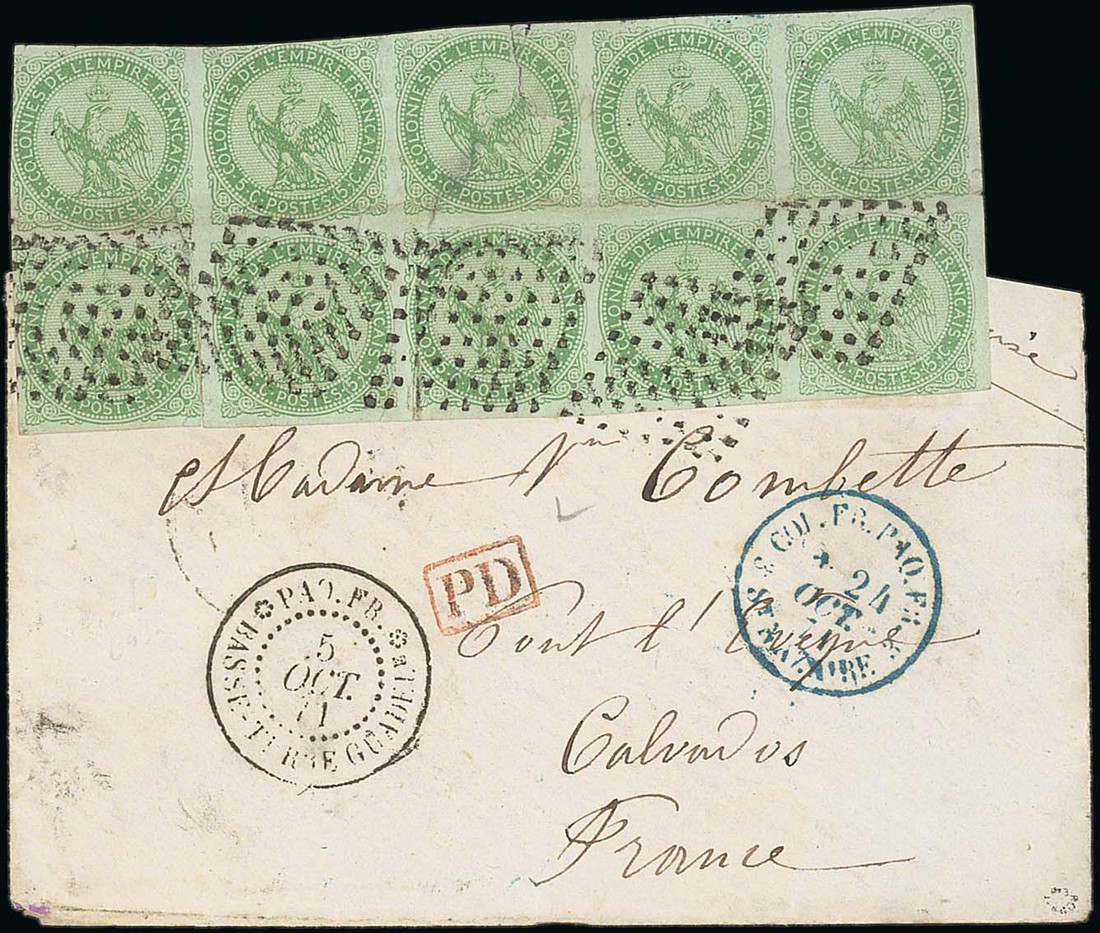 COLONIES DE L'EMPIRE FRANÇAIS 5.C. POSTES. 5.C.
COLONIES DE L'EMPIRE FRANÇAIS 5.C. POSTES. 5.C.
COLONIES DE L'EMPIRE FRANÇAIS 5.C. POSTES. 5.C.
COLONIES DE L'EMPIRE FRANÇAIS 5.C. POSTES. 5.C.
COLONIES DE L'EMPIRE FRANÇAIS 5.C. POSTES. 5.C.
COLONIES DE L'EMPIRE FRANÇAIS 5.C. POSTES. 5.C.
COLONIES DE L'EMPIRE FRANÇAIS 5.C. POSTES. 5.C.
COLONIES DE L'EMPIRE FRANÇAIS 5.C. POSTES. 5.C.
COLONIES DE L'EMPIRE FRANÇAIS 5.C. POSTES. 5.C.
COLONIES DE L'EMPIRE FRANÇAIS 5.C. POSTES. 5.C.
Madame Vve Combette
COL. FR. PAQ. FR.
24
OCT.
71
ST NAZAIRE
PD
PAQ. FR.
5
OCT.
71
BASSE-TERRE GUADELPE
Pont l'Eveque
Calvados
France